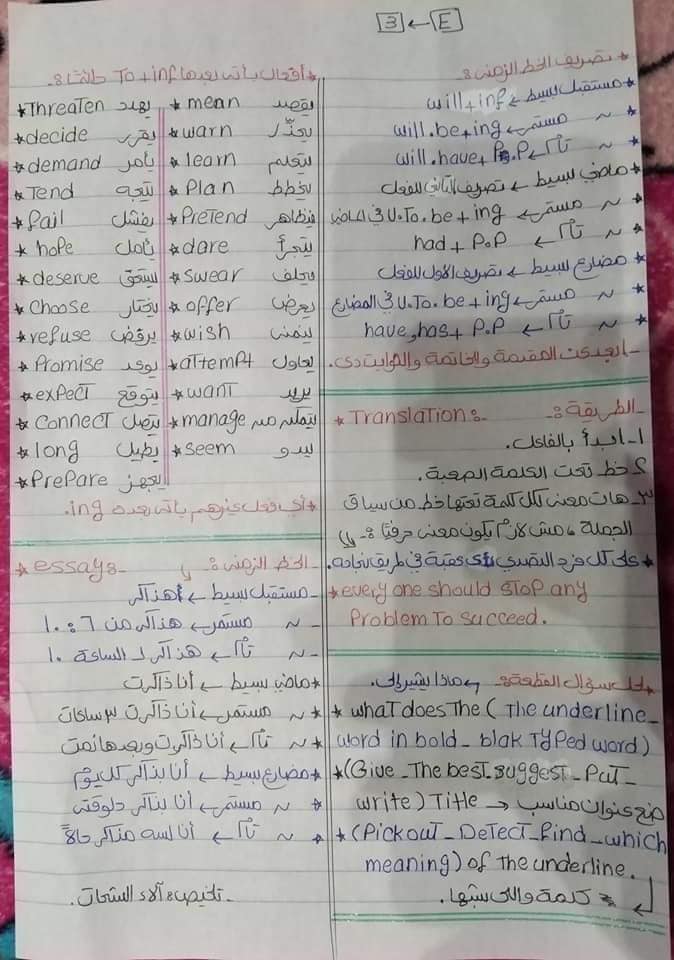 3 ← E
* تصريف الخط الزمنى :
* مستقبل بسيط ← will + inf
* ~ مستمر ← will . be + ing
* ~ تام ← will . have + P.P
* ماضي بسيط ← تصريف التانى للفعل
* ~ مستمر ← V. To. be + ing في الماضي
* ~ تام ← had + P.P
* مضارع بسيط ← تصريف الأول للفعل
* ~ مستمر ← V. To. be + ing في المضارع
* ~ تام ← have, has + P.P
المقدمة والخاتمة
* Translation :- الطريقة :-
١- ابدأ بالفاعل.
٢ خط تحت الكلمة الصعبة.
٣- هات معنى لكل كلمة تحتها خط من سياق
الجملة ، مش لازم يكون معنى حرفيًا :-
* على كل فرد التصدي لأى عقبة في طريق نجاحه.
* every one should stop any
Problem To succeed.
* حل سؤال القطعة :- ماذا يشير إلى.
* what does The ( The underline_
word in bold _ blak Typed word )
* (Give _ The best _ suggest _ Put _
write ) Title → ضع عنوان مناسب
* (Pick out _ Detect _ find _ which
meaning) of the underline.
كلمة واللى سبتها.
* أفعال يأتى بعدها To + inf دائمًا :
* Threaten يهدد * mean يقصد
* decide يقرر * warn يحذر
* demand يأمر * learn يتعلم
* Tend يتجه * Plan يخطط
* fail يفشل * Pretend يتظاهر
* hope يأمل * dare يتجرأ
* deserve يستحق * swear يحلف
* choose يختار * offer يعرض
* refuse يرفض * wish يتمنى
* Promise يوعد * attempt يحاول
* expect يتوقع * want يريد
* connect يتصل * manage يتمكن من
* long يطيل * seem يبدو
* Prepare يجهز
* أي فعل غيرهم يأتى بعده ing.
* essay :- الخط الزمنى :-
- مستقبل بسيط ← هذاكر
- ~ مستمر ← هذاكر من ٦ : ١٠
- ~ تام ← هذاكر لـ الساعة ١٠
* ماضي بسيط ← أنا ذاكرت
* ~ مستمر ← أنا ذاكرت ٣ ساعات
* ~ تام ← أنا ذاكرت وبعدها نمت
* مضارع بسيط ← أنا بذاكر كل يوم
* ~ مستمر ← أنا بذاكر دلوقتى
* ~ تام ← أنا لسه مذاكر حالاً
- تلخيص : آلاء